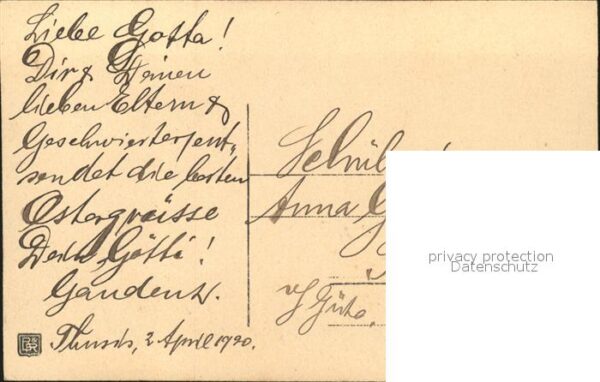 Liebe Gotta!
Dir & Deinen
lieben Eltern &
Geschwister ent,,
sendet die besten
Ostergrüsse
Dein Götti!
Gaudenz.
Thusis, 2 April 1920.
Anna
privacy protection
Datenschutz